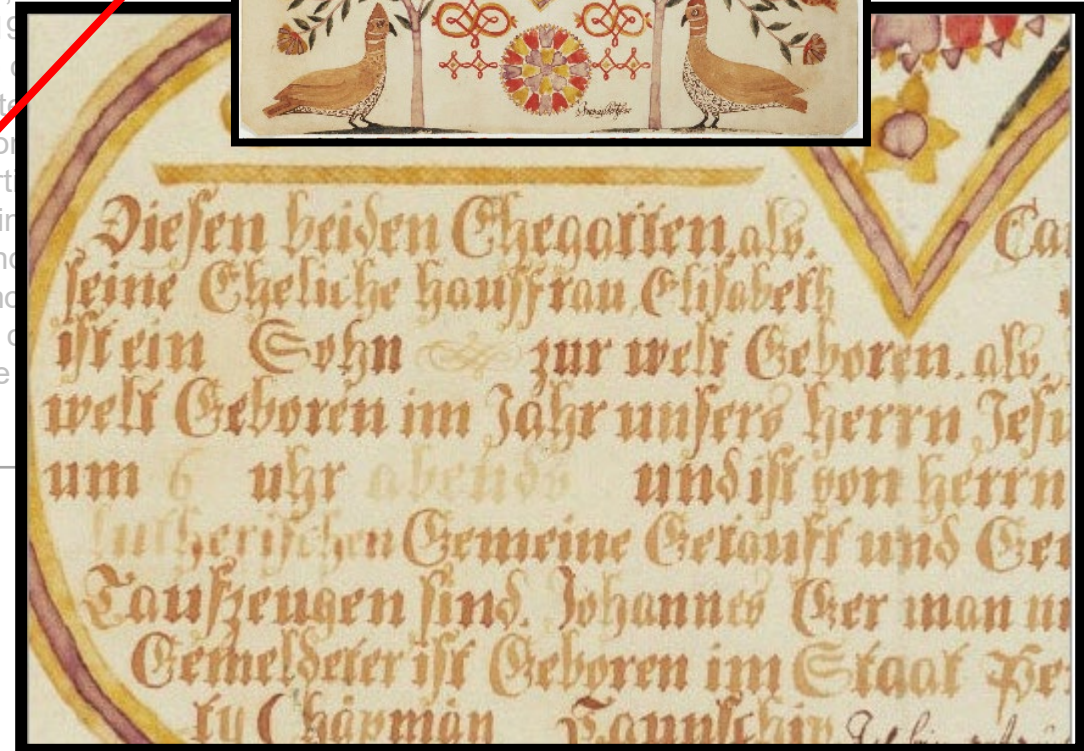 Diesen beiden Ehegatten, als.
Ca
seine Eheliche hauffrau, Elisabeth
ist ein Sohn zur welt Geboren. als
welt Geboren im Jahr unsers herrn Jesu
um 6 uhr abends und ist von herrn
lutherischen Gemeine Getauft und Ge
Taufzeugen sind. Johannes Ger man u
Gemeldeter ist Geboren im Staat Pe
ty Chapman Taunschip